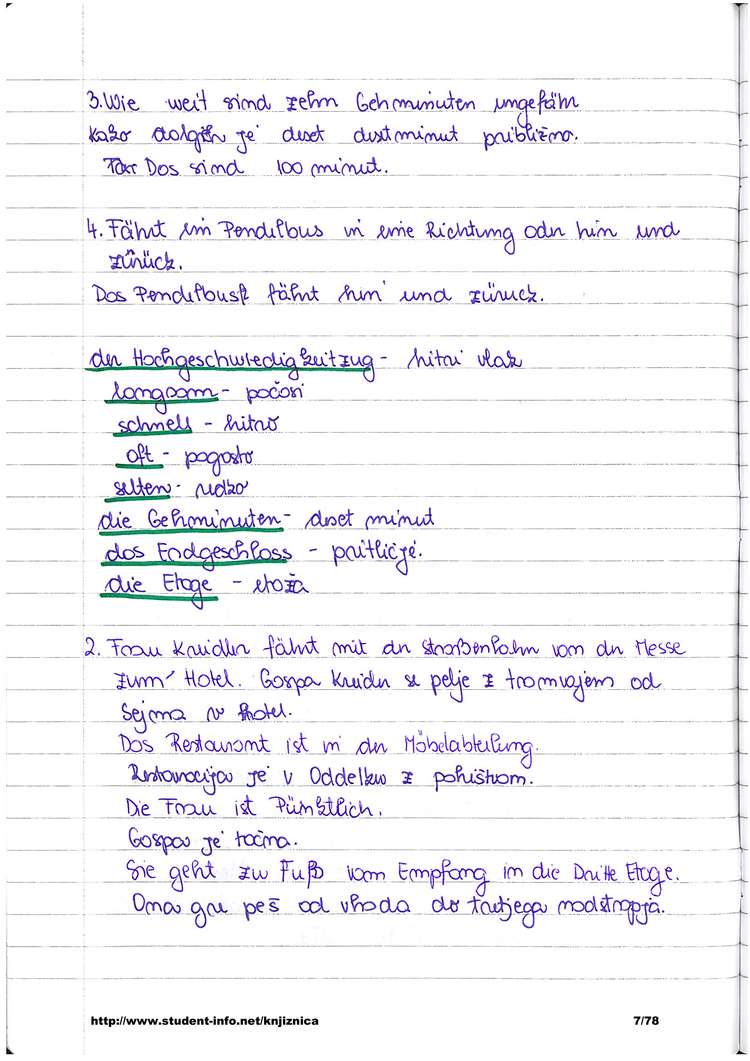 3. Wie weit sind zehn Gehminuten ungefähr
Kako dolgih je deset dest minut približno.
Das sind 100 minut.
4. Fährt ein Pendelbus in eine Richtung oder hin und
zürück.
Das Pendelbus fährt hin und zürück.
der Hochgeschwiedigkeitzug - hitri vlak
langsam - počasi
schnell - hitro
oft - pogosto
selten - redko
die Gehminuten - deset minut
das Erdgeschloss - pritličje.
die Etage - etaža
2. Frau Kreidler fährt mit der Straßenbahn vom der Messe
zum Hotel. Gospa Kreider se pelje z tramvajem od
Sejma v hotel.
Das Restaurant ist in der Möbelabteilung.
Restavracija je v Oddelku z pohištvom.
Die Frau ist Pünktlich.
Gospa je točna.
Sie geht zu Fuß vom Empfang in die Dritte Etage.
Ona gre peš od vhoda do tretjega nadstropja.
http://www.student-info.net/knjiznica 7/78